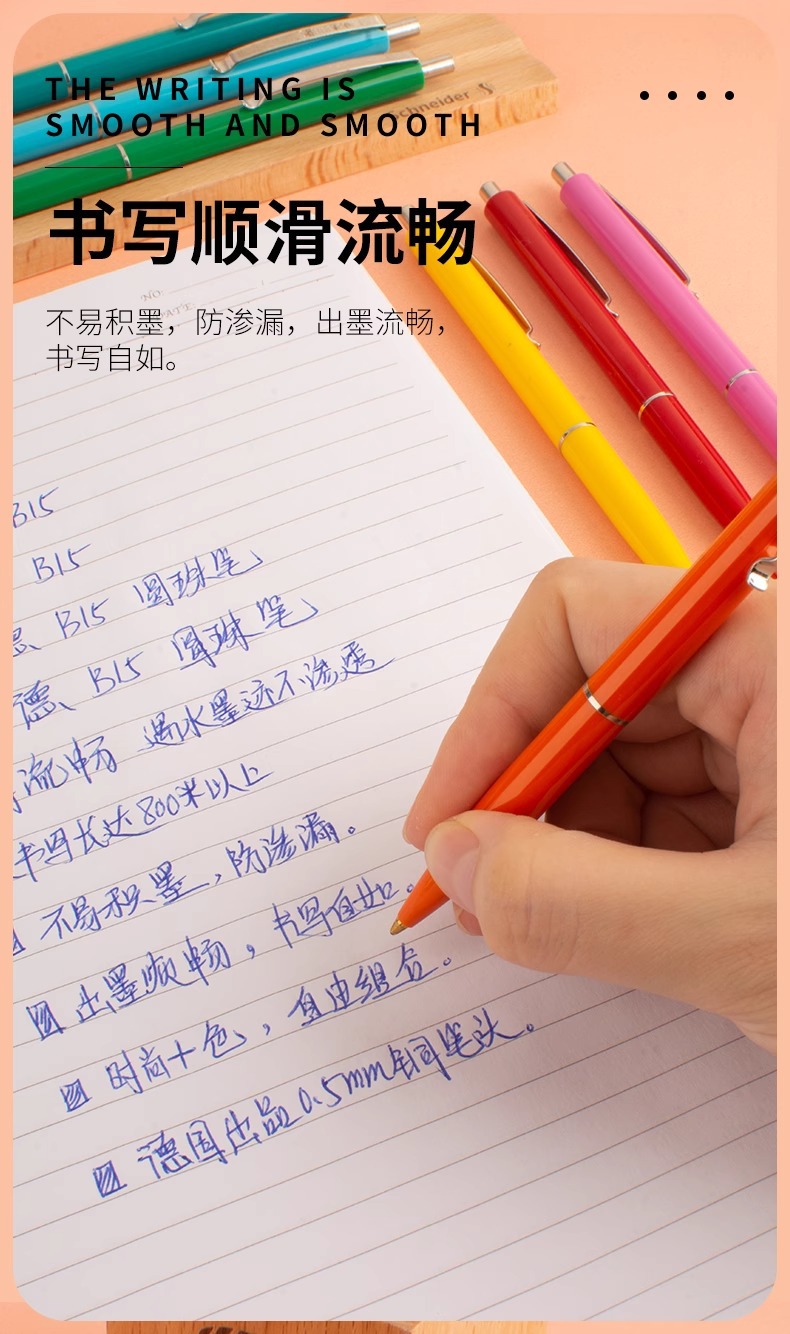 THE WRITING IS
SMOOTH AND SMOOTH
Schneider
书写顺滑流畅
NO.
DATE
不易积墨，防渗漏，出墨流畅，
书写自如。
B15
B15
B15 圆珠笔
德、B15 圆珠笔
流畅 遇水墨迹不渗透
书写长达800米以上
不易积墨，防渗漏。
出墨顺畅，书写自如。
时尚十色，自由组合。
德国出品0.5mm铜笔头。